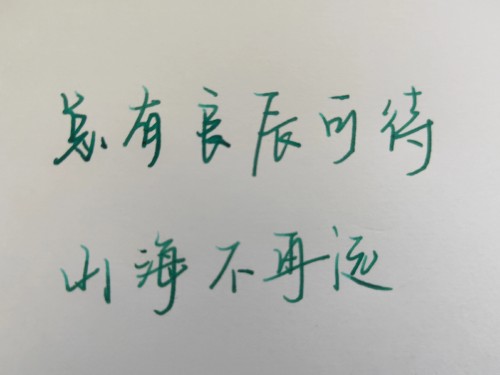 总有良辰可待
山海不再远